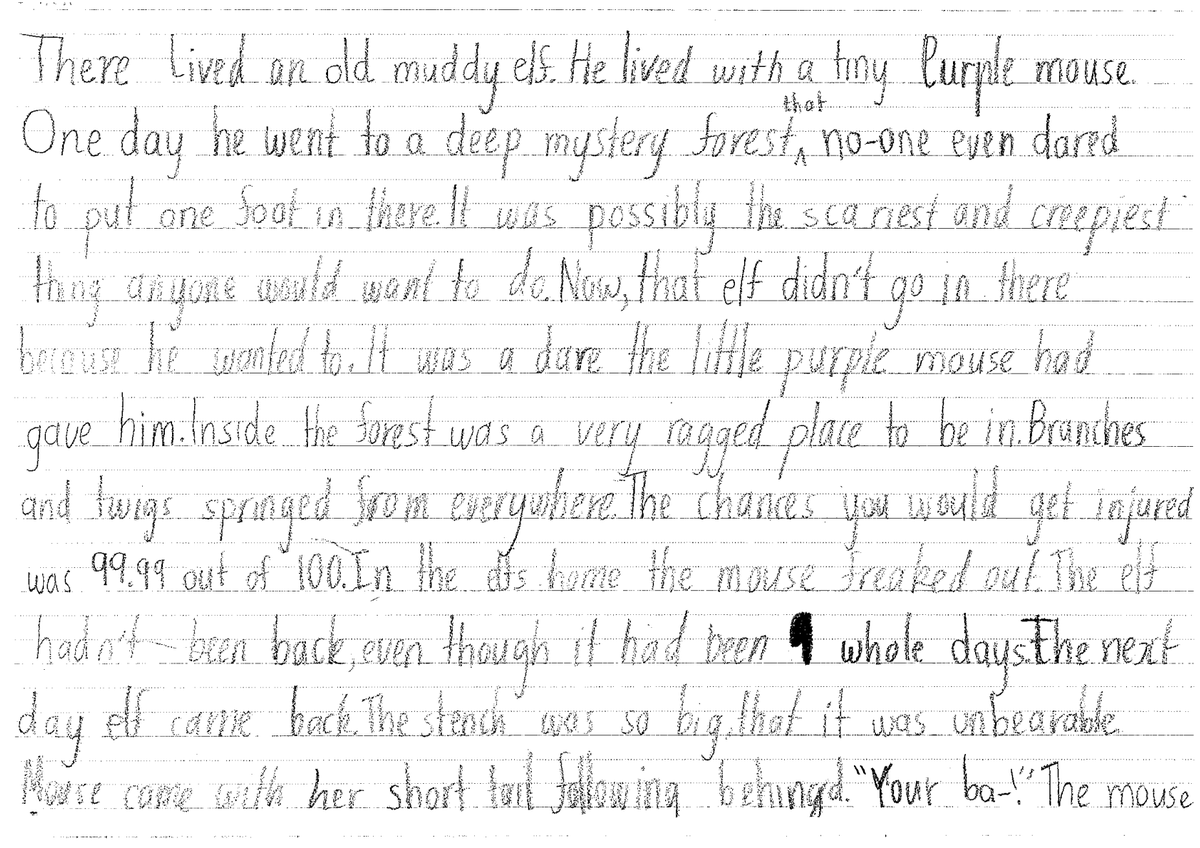 There lived an old muddy elf. He lived with a tiny Purple mouse.
One day he went to a deep mystery forest, that no-one even dared
to put one foot in there. It was possibly the scariest and creepiest
thing anyone would want to do. Now, that elf didn't go in there
because he wanted to. It was a dare the little purple mouse had
gave him. Inside the forest was a very ragged place to be in. Branches
and twigs springed from everywhere. The chances you would get injured
was 99.99 out of 100. In the elfs home the mouse freaked out. The elf
hadn't been back, even though it had been 9 whole days. The next
day elf came back. The stench was so big, that it was unbearable.
Mouse came with her short tail following behind. "Your ba-!" The mouse